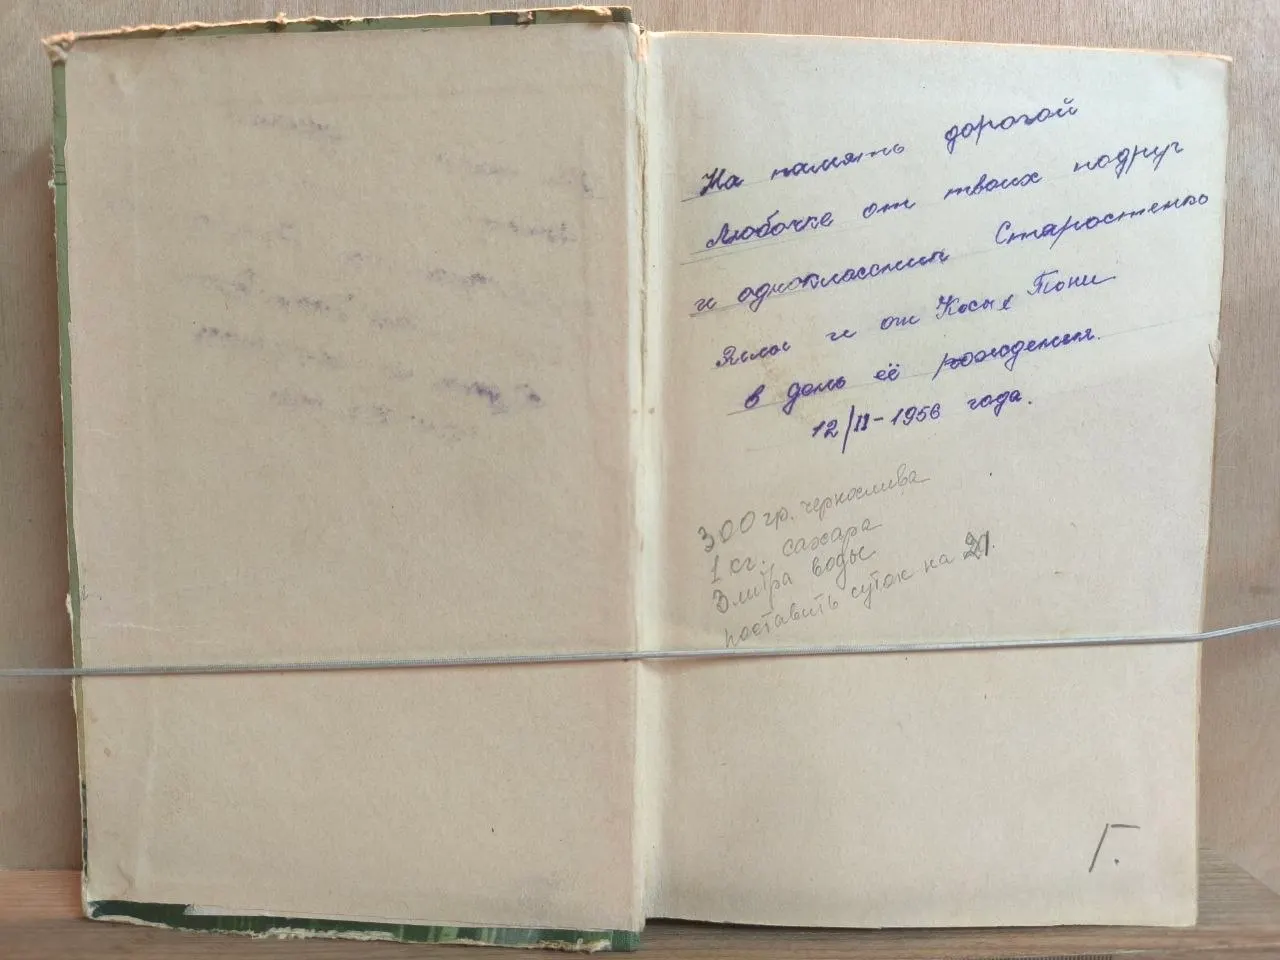 На память дорогой
Любочке от твоих подруг
и одноклассниц Старостенко
Яли и от Косых Тони
в день её рождения.
12/II-1956 года.
300 гр. чернослива
1 кг. сахара
3 литра воды
поставить суток на 21.
Г.